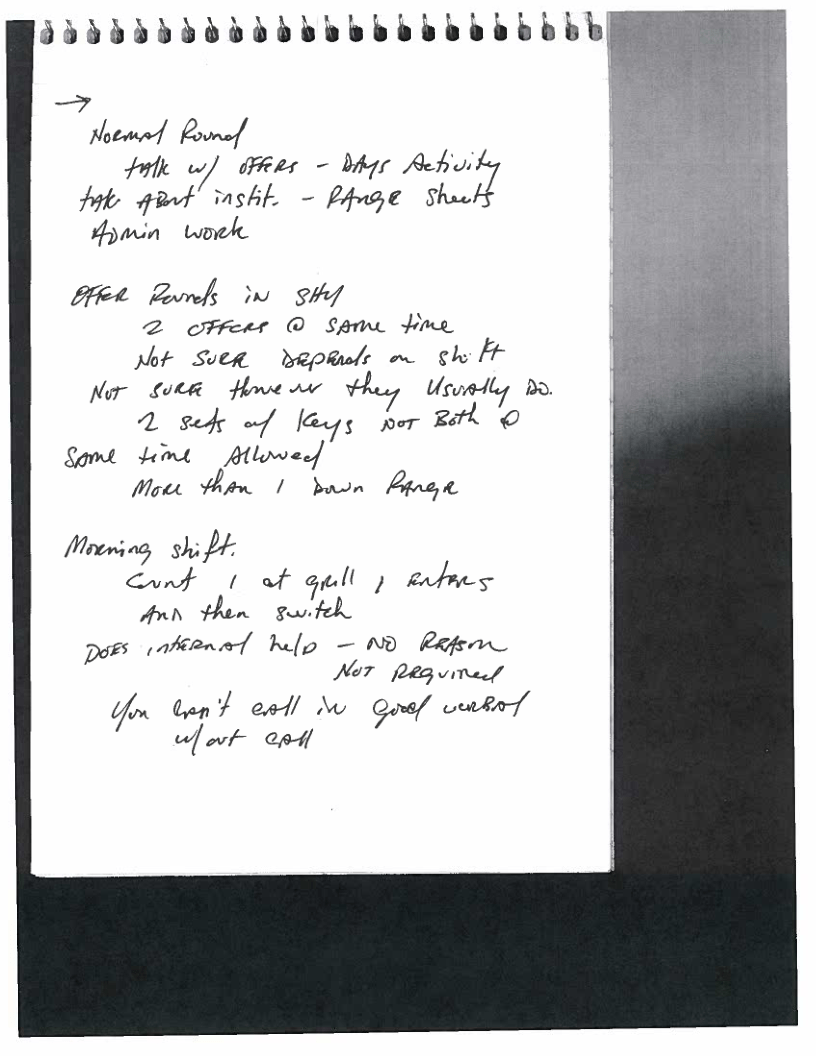 →
Normal Round
talk w/ OFFERS - DAys Activity
talk About instit. - RAnge Sheets
Admin work
OFFER Rounds in SHU
2 OFFERS @ SAme time
Not SURE DepEnds on shift
Not SURE they Usually Do.
2 sets of Keys NOT Both @
SAme time Allowed
More thAn 1 Down RAnge
Morning shift.
Count 1 at grill 1 Enters
And then switch
DOES internal help - NO REASon
Not REquired
You Don't call in good verbal
w/out call